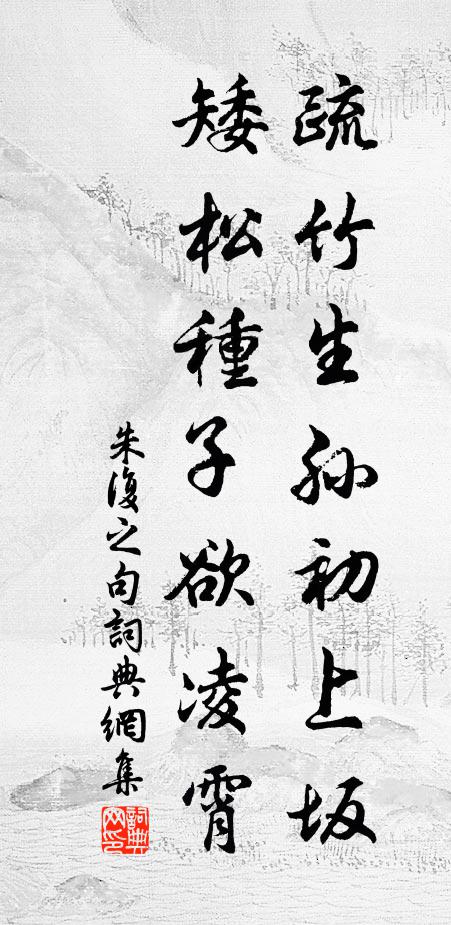 疏竹生孙初上坂
矮松種子欲凌霄
朱復之句詞典網集
詞典網印